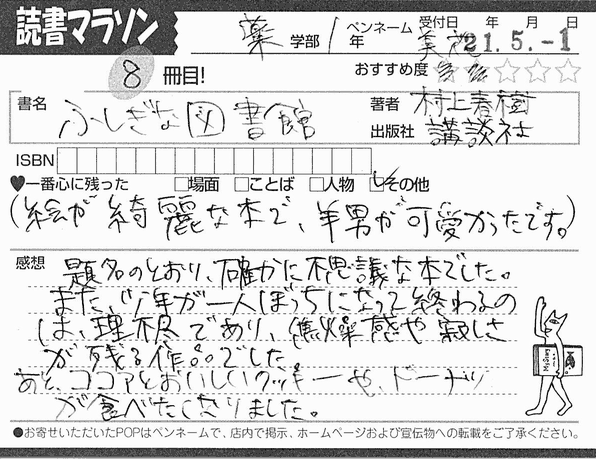 読書マラソン
薬 学部 1 年 ペンネーム 美茂 受付日 年 月 日 21.5.-1
8 冊目! おすすめ度 ☆☆☆☆☆
書名 ふしぎな図書館 著者 村上春樹
出版社 講談社
ISBN
♥一番心に残った □場面 □ことば □人物 ☑その他
(絵が綺麗な本で、羊男が可愛かったです。)
感想 題名のとおり、確かに不思議な本でした。
また、少年が一人ぼっちになって終わるの
は、理不尽であり、焦燥感や寂しさ
が残る作品でした。
あと、ココアとおいしいクッキーや、ドーナツ
が食べたくなりました。
●お寄せいただいたPOPはペンネームで、店内で掲示、ホームページおよび宣伝物への転載をご了承ください。